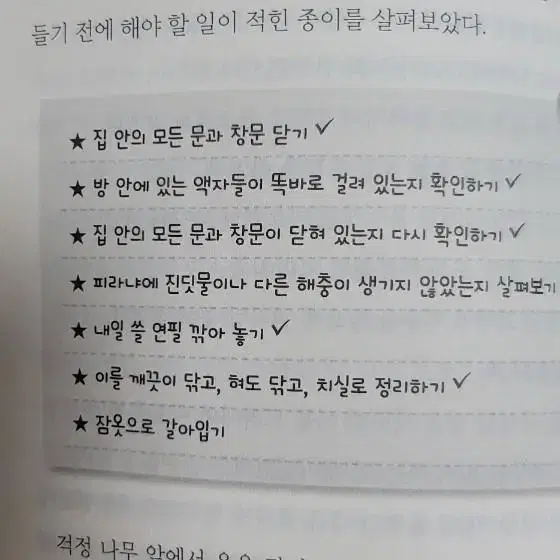 들기 전에 해야 할 일이 적힌 종이를 살펴보았다.
★ 집 안의 모든 문과 창문 닫기 ✓
★ 방 안에 있는 액자들이 똑바로 걸려 있는지 확인하기 ✓
★ 집 안의 모든 문과 창문이 닫혀 있는지 다시 확인하기 ✓
★ 피라냐에 진딧물이나 다른 해충이 생기지 않았는지 살펴보기
★ 내일 쓸 연필 깎아 놓기 ✓
★ 이를 깨끗이 닦고, 혀도 닦고, 치실로 정리하기 ✓
★ 잠옷으로 갈아입기
걱정 나무 앞에서